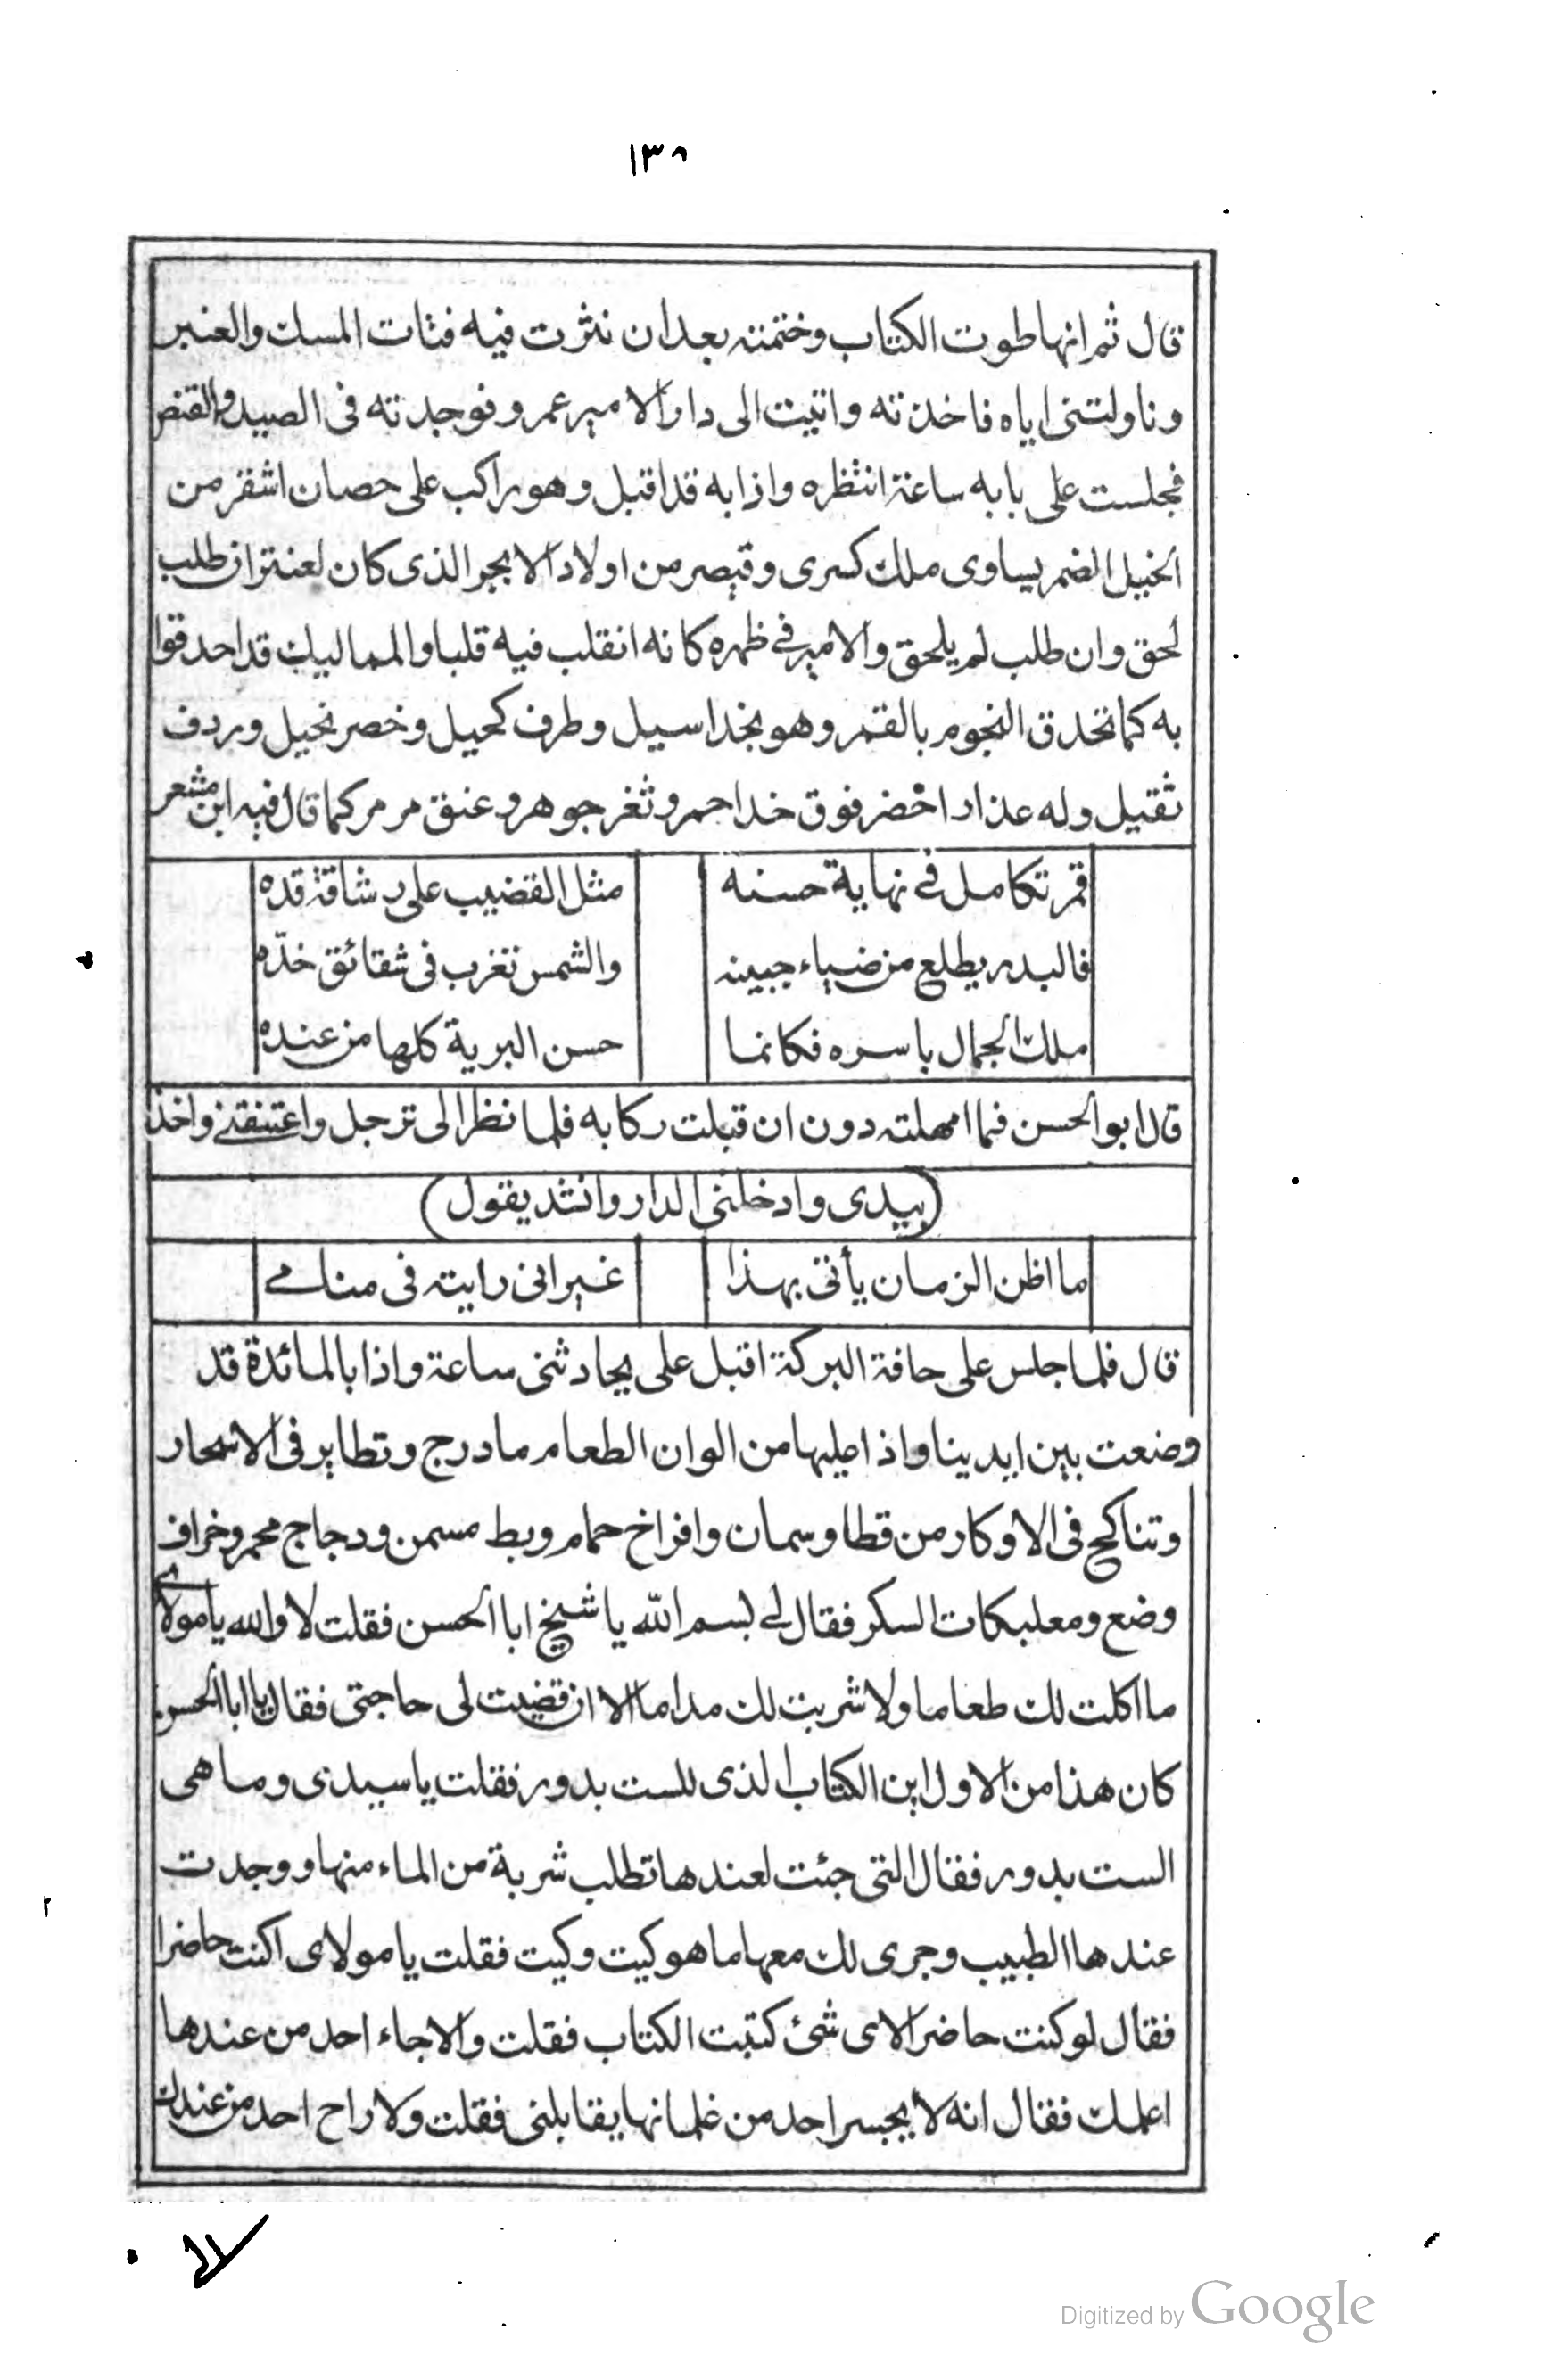 ١٣٨
قال ثم انها طوت الكتاب وختمته بعد ان نثرت فيه فتات المسك والعنبر
وناولتنى اياه فاخذته واتيت الى دار الامير عمرو فوجدته فى الصيد والقنص
فجلست على بابه ساعة انتظره واذا به قد اقبل وهو راكب على حصان اشقر من
الخيل الضمر يساوى ملك كسرى وقيصر من اولاد الابجر الذى كان لعنتر ان طلب
لحق وان طلب لم يلحق والامير فى ظهره كانه انقلب فيه قلبا والمماليك قد احدقوا
به كما تحدق النجوم بالقمر وهو بخد اسيل وطرف كحيل وخصر نحيل وردف
ثقيل وله عذار اخضر فوق خد احمر وثغر جوهر وعنق مرمر كما قال فيه ابن مشعر
قمر تكامل فى نهاية حسنه مثل القضيب على رشاقة قده
فالبدر يطلع من ضياء جبينه والشمس تغرب فى شقائق خدّه
ملك الجمال باسره فكانما حسن البرية كلها من عنده
قال ابو الحسن فما امهلته دون ان قبلت ركابه فلما نظر الى ترجل واعتنقنى واخذ
(بيدى وادخلنى الدار وانشد يقول)
ما اظن الزمان يأتى بهذا غير انى رايته فى منامى
قال فلما جلس على حافة البركة اقبل على يحادثنى ساعة واذا بالمائدة قد
وضعت بين ايدينا واذا عليها من الوان الطعام ما درج وتطاير فى الاسحار
وتناكح فى الاوكار من قطا وسمان وافراخ حمام وبط مسمن ودجاج محمر وخراف
وضع ومعلبكات السكر فقال لى بسم الله يا شيخ ابا الحسن فقلت لا والله يا مولاى
ما اكلت لك طعاما ولا شربت لك مداما الا ان قضيت لى حاجتى فقال يا ابا الحسن
كان هذا من الاول اين الكتاب الذى للست بدور فقلت يا سيدى وما هى
الست بدور فقال التى جئت لعندها تطلب شربة من الماء منها ووجدت
عندها الطبيب وجرى لك معها ما هو كيت وكيت فقلت يا مولاى اكنت حاضرا
فقال لو كنت حاضر الاى شئ كتبت الكتاب فقلت والا جاء احد من عندها
اعلمك فقال انه لا يجسر احد من غلمانها يقابلنى فقلت ولا راح احد من عندك
Digitized by Google